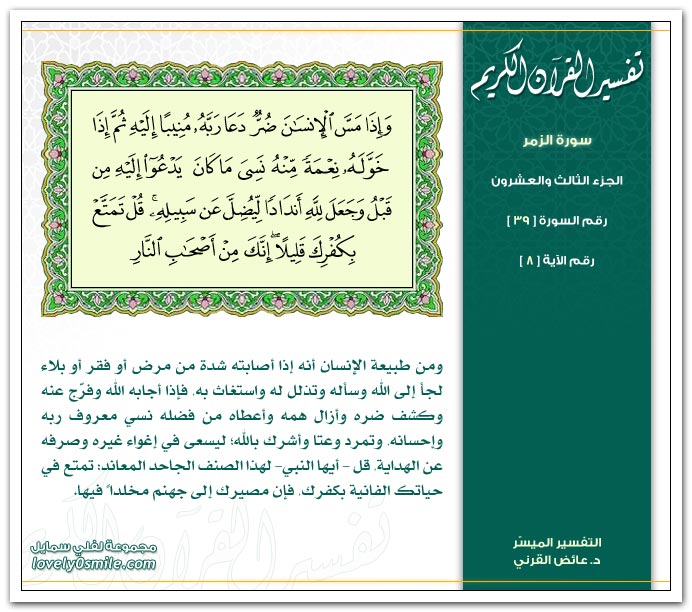 تفسير القرآن الكريم
سورة الزمر
الجزء الثالث والعشرون
رقم السورة [ ٣٩ ]
رقم الآية [ ٨ ]
وَإِذَا مَسَّ ٱلْإِنسَـٰنَ ضُرٌّ دَعَا رَبَّهُۥ مُنِيبًا إِلَيْهِ ثُمَّ إِذَا
خَوَّلَهُۥ نِعْمَةً مِّنْهُ نَسِىَ مَا كَانَ يَدْعُوٓا۟ إِلَيْهِ مِن
قَبْلُ وَجَعَلَ لِلَّهِ أَندَادًا لِّيُضِلَّ عَن سَبِيلِهِۦ ۚ قُلْ تَمَتَّعْ
بِكُفْرِكَ قَلِيلًا ۖ إِنَّكَ مِنْ أَصْحَـٰبِ ٱلنَّارِ
ومن طبيعة الإنسان أنه إذا أصابته شدة من مرض أو فقر أو بلاء
لجأ إلى الله وسأله وتذلل له واستغاث به. فإذا أجابه الله وفرّج عنه
وكشف ضره وأزال همه وأعطاه من فضله نسي معروف ربه
وإحسانه. وتمرد وعتا وأشرك بالله؛ ليسعى في إغواء غيره وصرفه
عن الهداية. قل - أيها النبي- لهذا الصنف الجاحد المعاند: تمتع في
حياتك الفانية بكفرك. فإن مصيرك إلى جهنم مخلداً فيها.
التفسير الميسّر
د. عائض القرني
تفسير القرآن الكريم
مجموعة لفلي سمايل
lovely0smile.com